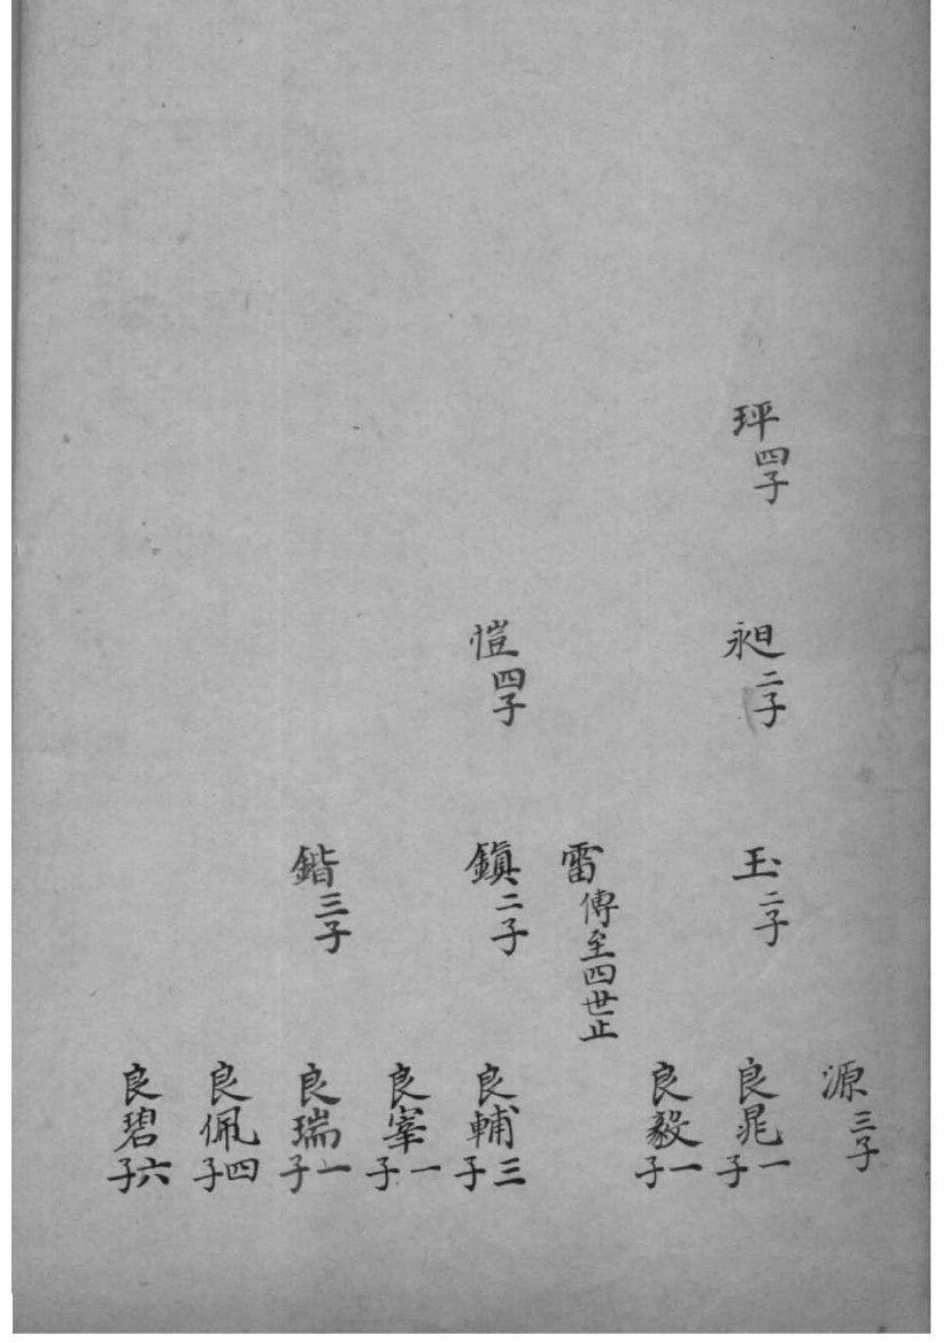 源三子
玶四子
昶二子
玉二子
良晁一子
良毅一子
雷傳至四世止
愷四子
鎭二子
良輔三子
良 一子
鍇三子
良瑞一子
良佩四子
良碧六子